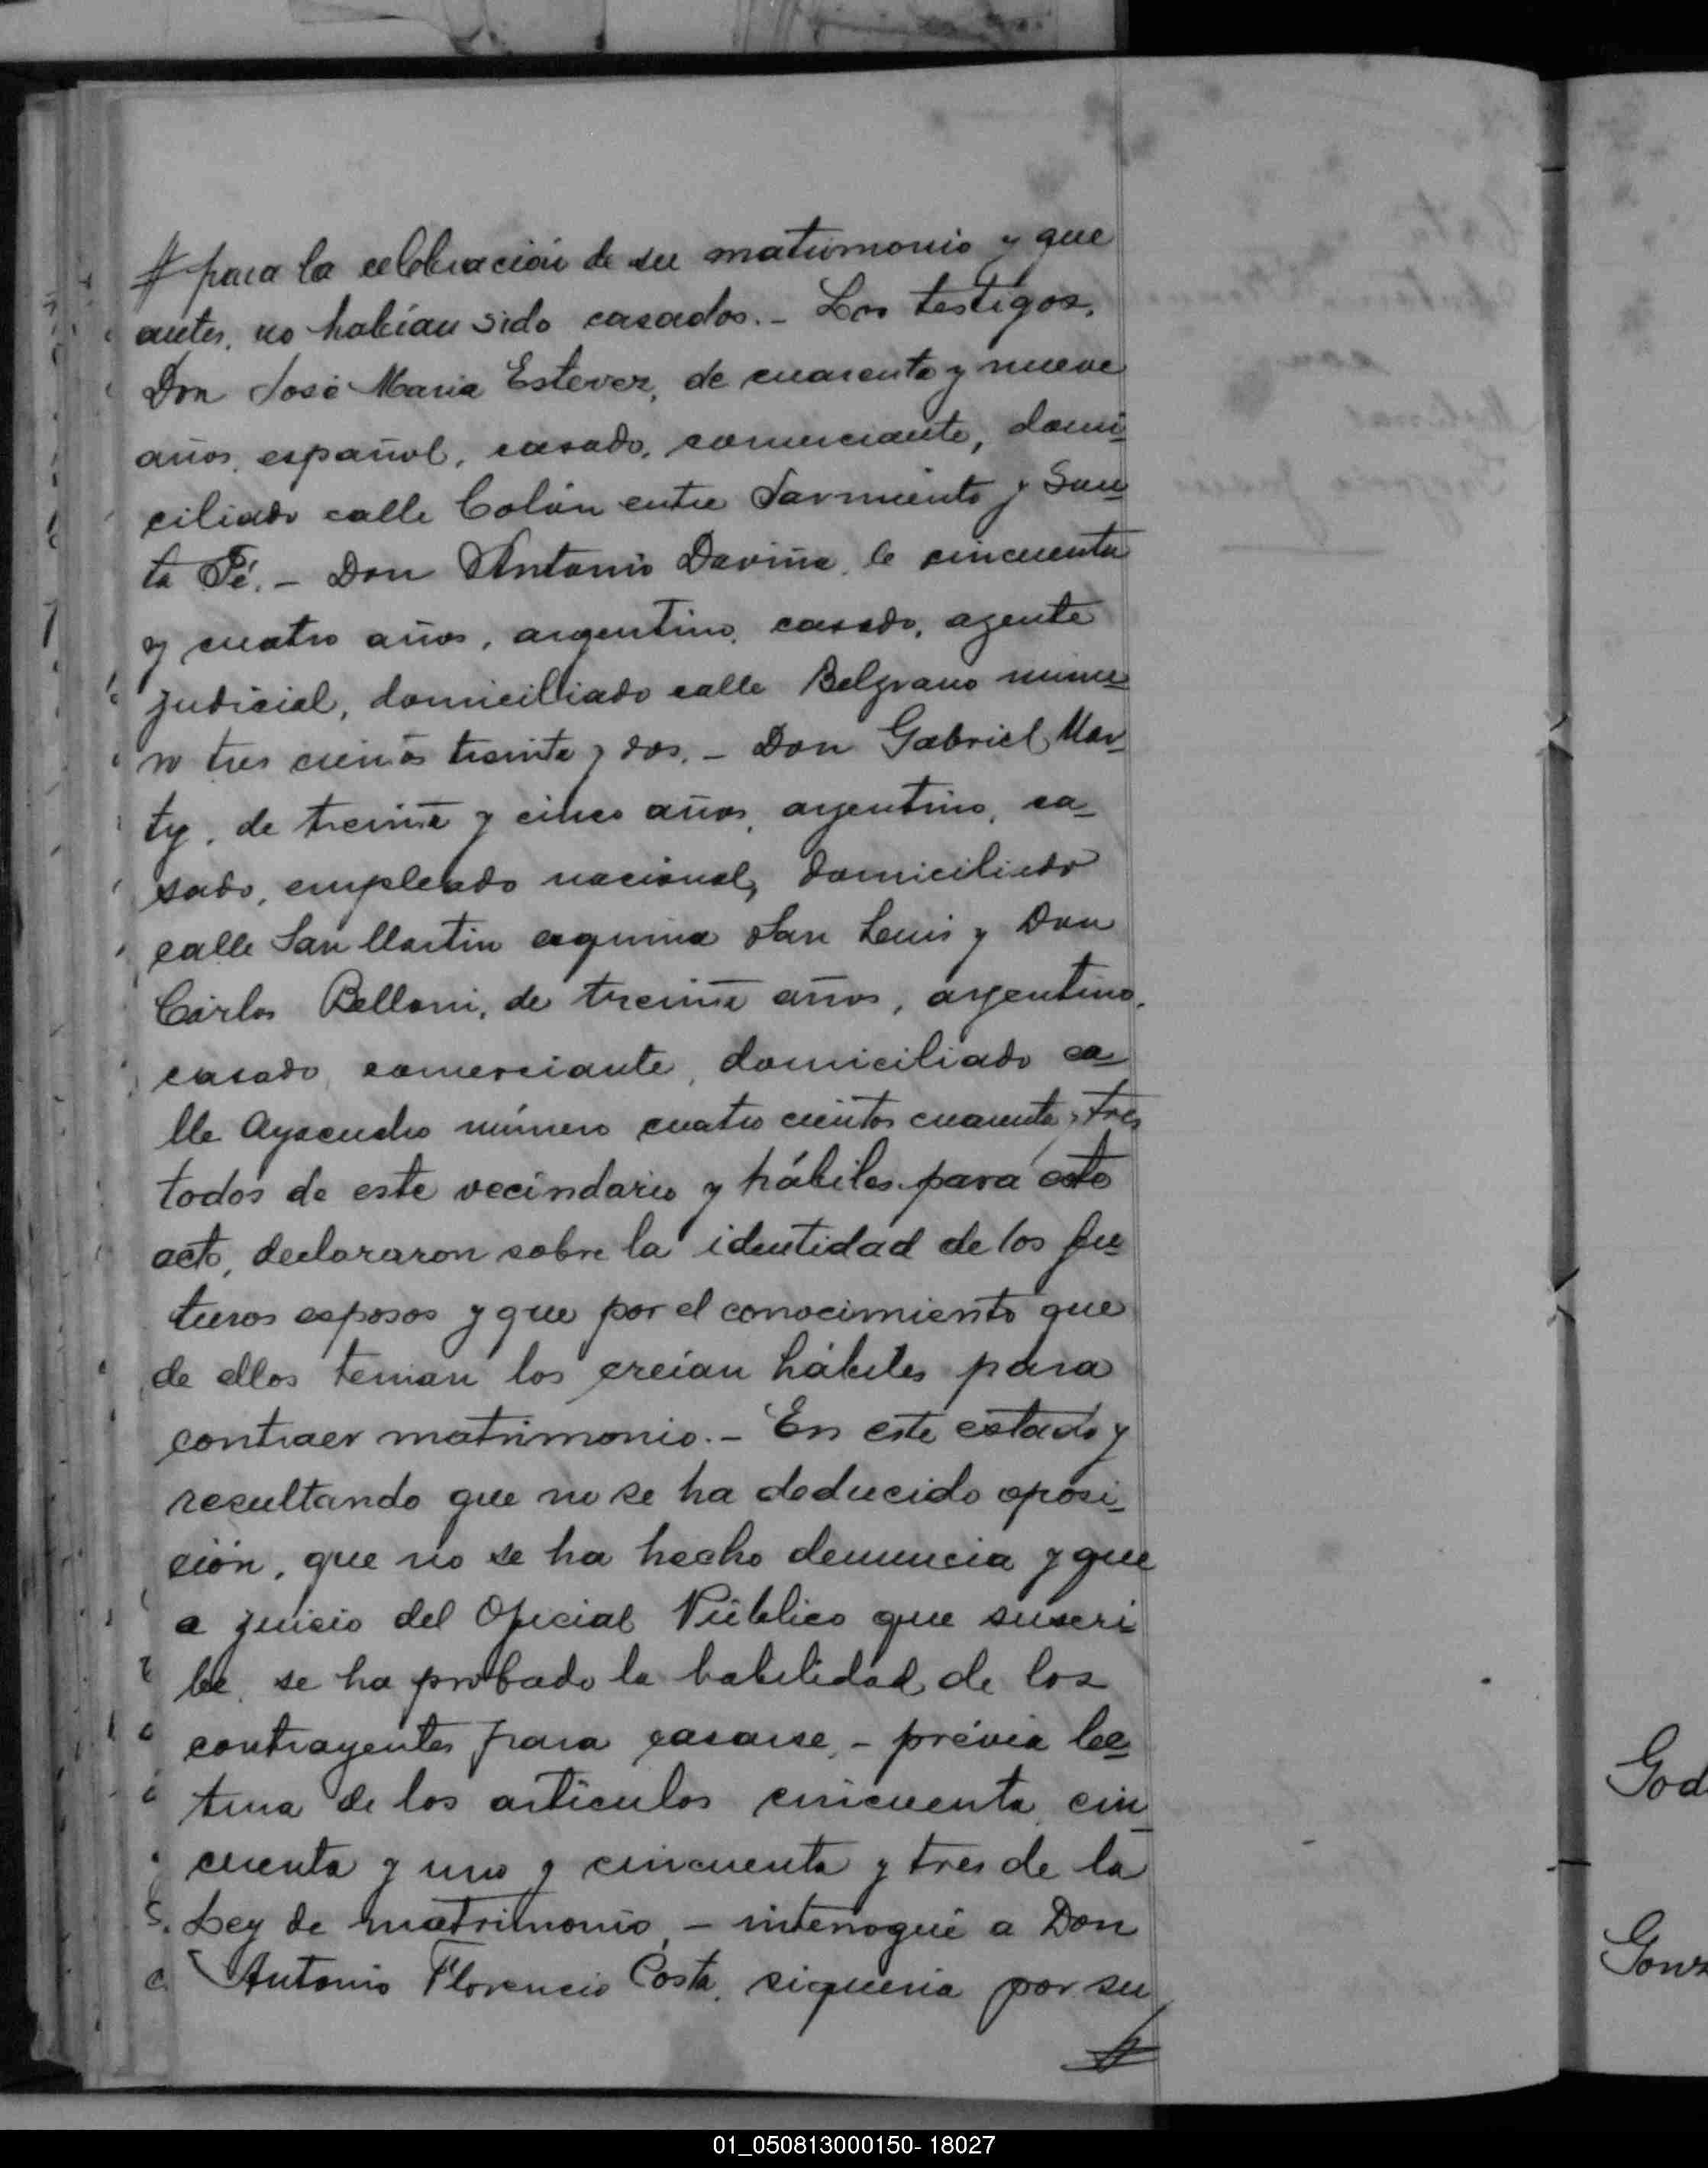 # para la celebración de su matrimonio y que
antes, no habían sido casados. - Los testigos,
Don José Maria Estevez, de cuarenta y nueve
años, español, casado, comerciante, domi-
ciliado calle Colón entre Sarmiento y San-
ta Fé. - Don Antonio Daviña, de cincuenta
y cuatro años, argentino, casado, agente
judicial, domiciliado calle Belgrano núme-
ro tres cientos treinta y dos. - Don Gabriel Mar-
ty, de treinta y cinco años, argentino, ca-
sado, empleado nacional, domiciliado
calle San Martin esquina San Luis y Don
Cárlos Belloni, de treinta años, argentino,
casado, comerciante, domiciliado ca-
lle Ayacucho número cuatro cientos cuarenta y tres
todos de este vecindario y hábiles para este
acto, declararon sobre la identidad de los fu-
turos esposos y que por el conocimiento que
de ellos tenian los creían hábiles para
contraer matrimonio. - En este estado y
resultando que no se ha deducido oposi-
ción, que no se ha hecho denuncia y que
a juicio del Oficial Público que suscri-
be, se ha probado la habilidad de los
contrayentes para casarse, - prévia lec-
tura de los artículos cincuenta, cin-
cuenta y uno y cincuenta y tres de la
Ley de matrimonio, - interrogué a Don
Antonio Florencio Costa, si queria por su
#
God
Gonz
01_050813000150- 18027